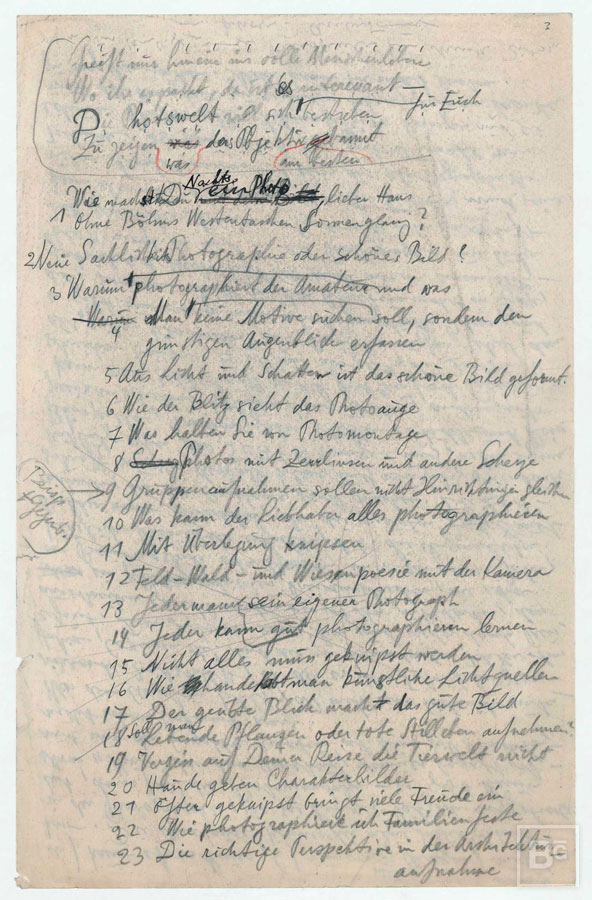 2
Greift nur hinein ins volle Menschenleben
Wo ihr es packt, da ist es interessant —
für Euch
Die Photowelt will sich bestreben
Zu zeigen was das Objektiv gebannt
was am besten
Wie machst Du Nachts ein Photo, lieber Hans
1 Ohne Böhms Westentaschen Sonnenglanz?
2 Neue Sachlichkeit Photographie oder schönes Bild?
3 Warum photographiert der Amateur und was
4 Warum Man keine Motive suchen soll, sondern den
günstigen Augenblick erfassen
5 Aus Licht und Schatten ist das schöne Bild geformt.
6 Wie der Blitz sieht das Photoauge
7 Was halten Sie von Photomontage
8 Photos mit Zerrlinsen und andere Scherze
9 Gruppenaufnahmen sollen nicht Hinrichtungen gleichen
10 Was kann der Liebhaber alles photographieren
11 Mit Überlegung knipsen
12 Feld-Wald- und Wiesenpoesie mit der Kamera
13 Jedermann sein eigener Photograph
14 Jeder kann gut photographieren lernen
15 Nicht alles muss geknipst werden
16 Wie handhabt man künstliche Lichtquellen
17 Der geübte Blick macht das gute Bild
18 Soll man Lebende Pflanzen oder tote Stilleben aufnehmen?
19 Vergiss auf Deiner Reise die Tierwelt nicht
20 Hände geben Charakterbilder
21 Öfter geknipst bringt viele Freude ein
22 Wie photographiere ich Familienfeste
23 Die richtige Perspektive in der Architektur
aufnahme
BG